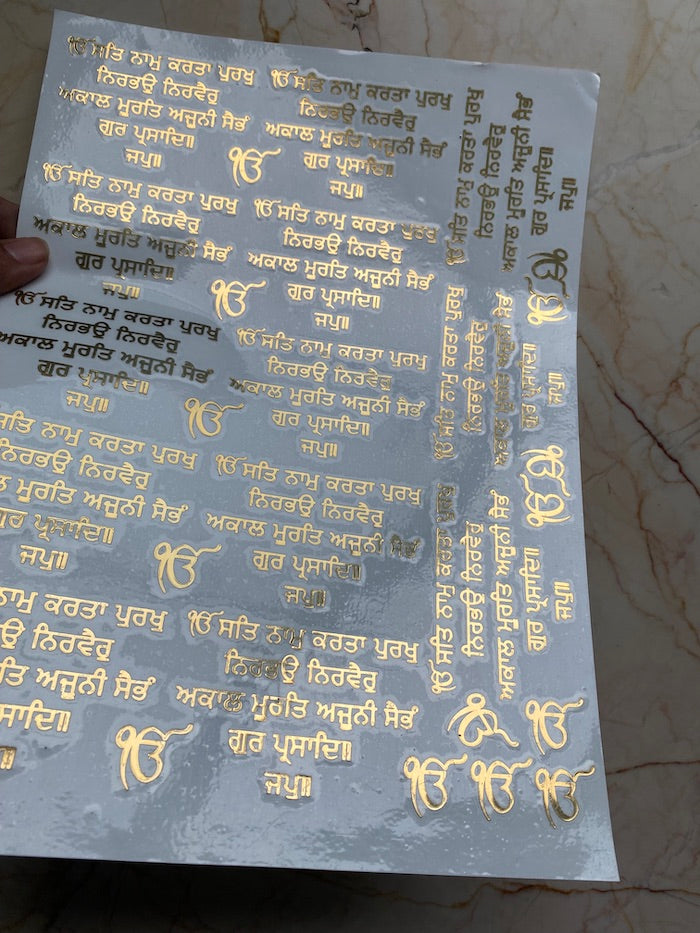 ੴ ਸਤਿ ਨਾਮੁ ਕਰਤਾ ਪੁਰਖੁ
ਨਿਰਭਉ ਨਿਰਵੈਰੁ
ਅਕਾਲ ਮੂਰਤਿ ਅਜੂਨੀ ਸੈਭੰ
ਗੁਰ ਪ੍ਰਸਾਦਿ॥
ਜਪੁ॥
ੴ
ੴ ਸਤਿ ਨਾਮੁ ਕਰਤਾ ਪੁਰਖੁ
ਨਿਰਭਉ ਨਿਰਵੈਰੁ
ਅਕਾਲ ਮੂਰਤਿ ਅਜੂਨੀ ਸੈਭੰ
ਗੁਰ ਪ੍ਰਸਾਦਿ॥
ਜਪੁ॥
ੴ
ੴ ਸਤਿ ਨਾਮੁ ਕਰਤਾ ਪੁਰਖੁ
ਨਿਰਭਉ ਨਿਰਵੈਰੁ
ਅਕਾਲ ਮੂਰਤਿ ਅਜੂਨੀ ਸੈਭੰ
ਗੁਰ ਪ੍ਰਸਾਦਿ॥
ਜਪੁ॥
ੴ
ਸਤਿ ਨਾਮੁ ਕਰਤਾ ਪੁਰਖੁ
ਨਿਰਭਉ ਨਿਰਵੈਰੁ
ਮੂਰਤਿ ਅਜੂਨੀ ਸੈਭੰ
ਗੁਰ ਪ੍ਰਸਾਦਿ॥
ਜਪੁ॥
ੴ
ਨਾਮੁ ਕਰਤਾ ਪੁਰਖੁ
ਨਿਰਵੈਰੁ
ਅਜੂਨੀ ਸੈਭੰ
ੴ
ੴ ਸਤਿ ਨਾਮੁ ਕਰਤਾ ਪੁਰਖੁ
ਨਿਰਭਉ ਨਿਰਵੈਰੁ
ਅਕਾਲ ਮੂਰਤਿ ਅਜੂਨੀ ਸੈਭੰ
ਗੁਰ ਪ੍ਰਸਾਦਿ॥
ਜਪੁ॥
ੴ ਸਤਿ ਨਾਮੁ ਕਰਤਾ ਪੁਰਖੁ
ਨਿਰਭਉ ਨਿਰਵੈਰੁ
ਅਕਾਲ ਮੂਰਤਿ ਅਜੂਨੀ ਸੈਭੰ
ਗੁਰ ਪ੍ਰਸਾਦਿ॥
ਜਪੁ॥
ੴ ਸਤਿ ਨਾਮੁ ਕਰਤਾ ਪੁਰਖੁ
ਨਿਰਭਉ ਨਿਰਵੈਰੁ
ਅਕਾਲ ਮੂਰਤਿ ਅਜੂਨੀ ਸੈਭੰ
ਗੁਰ ਪ੍ਰਸਾਦਿ॥
ਜਪੁ॥
ੴ ਸਤਿ ਨਾਮੁ ਕਰਤਾ ਪੁਰਖੁ
ਨਿਰਭਉ ਨਿਰਵੈਰੁ
ਅਕਾਲ ਮੂਰਤਿ ਅਜੂਨੀ ਸੈਭੰ
ਗੁਰ ਪ੍ਰਸਾਦਿ॥
ਜਪੁ॥
ੴ ਸਤਿ ਨਾਮੁ ਕਰਤਾ ਪੁਰਖੁ
ਨਿਰਭਉ ਨਿਰਵੈਰੁ
ਅਕਾਲ ਮੂਰਤਿ ਅਜੂਨੀ ਸੈਭੰ
ਗੁਰ ਪ੍ਰਸਾਦਿ॥
ਜਪੁ॥
ੴ ਸਤਿ ਨਾਮੁ ਕਰਤਾ ਪੁਰਖੁ
ਨਿਰਭਉ ਨਿਰਵੈਰੁ
ਅਕਾਲ ਮੂਰਤਿ ਅਜੂਨੀ ਸੈਭੰ
ਗੁਰ ਪ੍ਰਸਾਦਿ॥
ਜਪੁ॥
ੴ
ੴ
ੴ ਸਤਿ ਨਾਮੁ ਕਰਤਾ ਪੁਰਖੁ
ਨਿਰਭਉ ਨਿਰਵੈਰੁ
ਅਕਾਲ ਮੂਰਤਿ ਅਜੂਨੀ ਸੈਭੰ
ਗੁਰ ਪ੍ਰਸਾਦਿ॥
ਜਪੁ॥
ੴ
ੴ
ੴ ਸਤਿ ਨਾਮੁ ਕਰਤਾ ਪੁਰਖੁ
ਨਿਰਭਉ ਨਿਰਵੈਰੁ
ਅਕਾਲ ਮੂਰਤਿ ਅਜੂਨੀ ਸੈਭੰ
ਗੁਰ ਪ੍ਰਸਾਦਿ॥
ਜਪੁ॥
ੴ
ੴ
ੴ
ੴ
ੴ